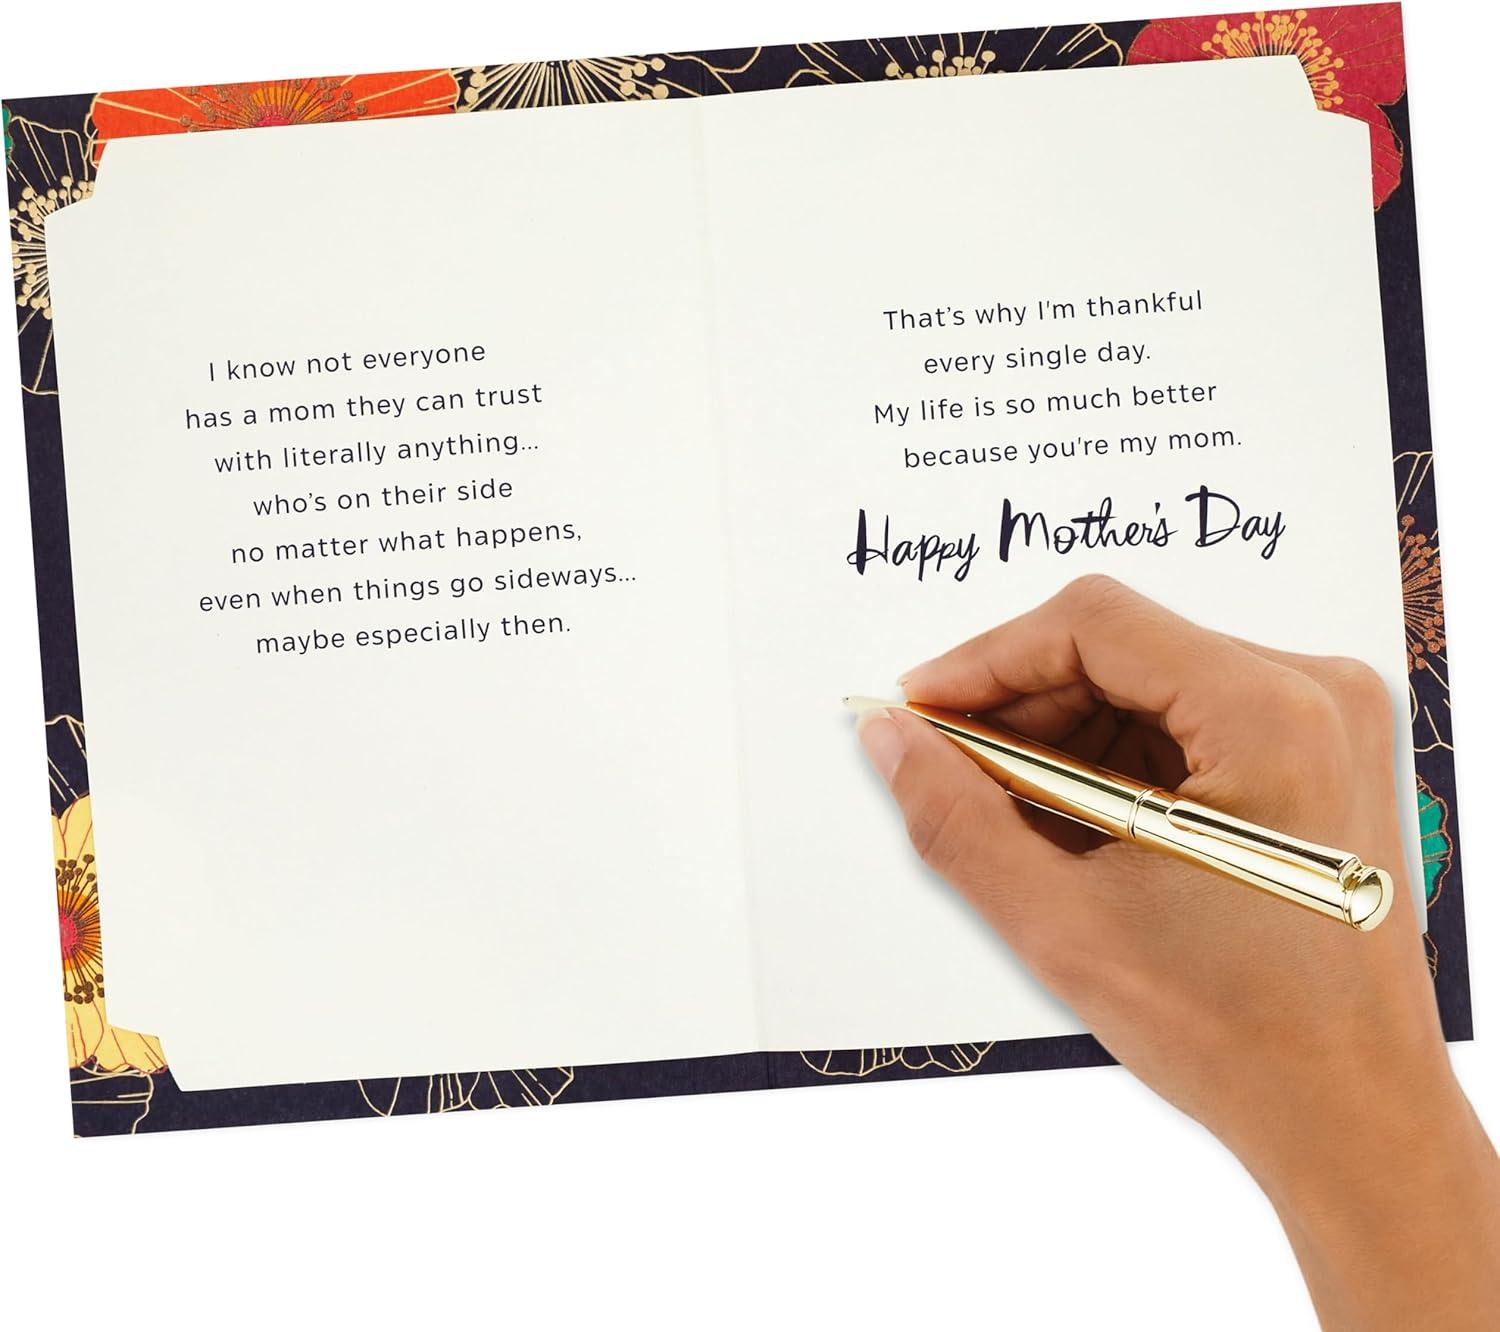 I know not everyone
has a mom they can trust
with literally anything...
who's on their side
no matter what happens,
even when things go sideways...
maybe especially then.
That's why I'm thankful
every single day.
My life is so much better
because you're my mom.
Happy Mother's Day